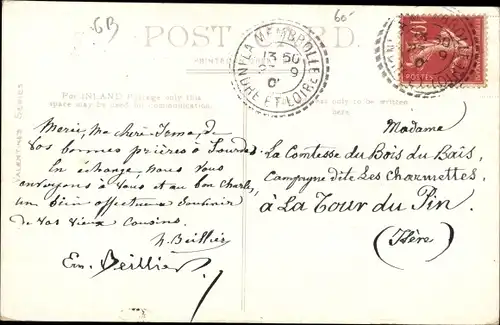 GB
60
POST CARD
LA MEMBROLLE
13 50
9
INDRE ET LOIRE
10
POSTES
For INLAND Postage only this
space may be used for communication.
only to be written
here.
VALENTINES SERIES
Merci, Ma chère de
vos bonnes prières à Lourdes
En échange, nous vous
envoyons à vous et au bon Charles,
un bien affectueux souvenir
de vos vieux cousins.
Beillier
Em. Beillier
Madame
La Comtesse du Bois du Bais,
Campagne dite Les Charmettes,
à La Tour du Pin
(Isère)